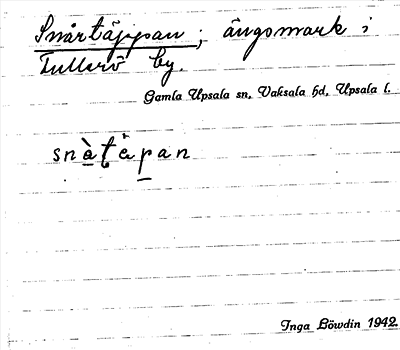 Snårtäppan; ängsmark i
Tullerö by.
Gamla Upsala sn, Vaksala hd, Upsala l.
snàʈèpan
Inga Löwdin 1942.